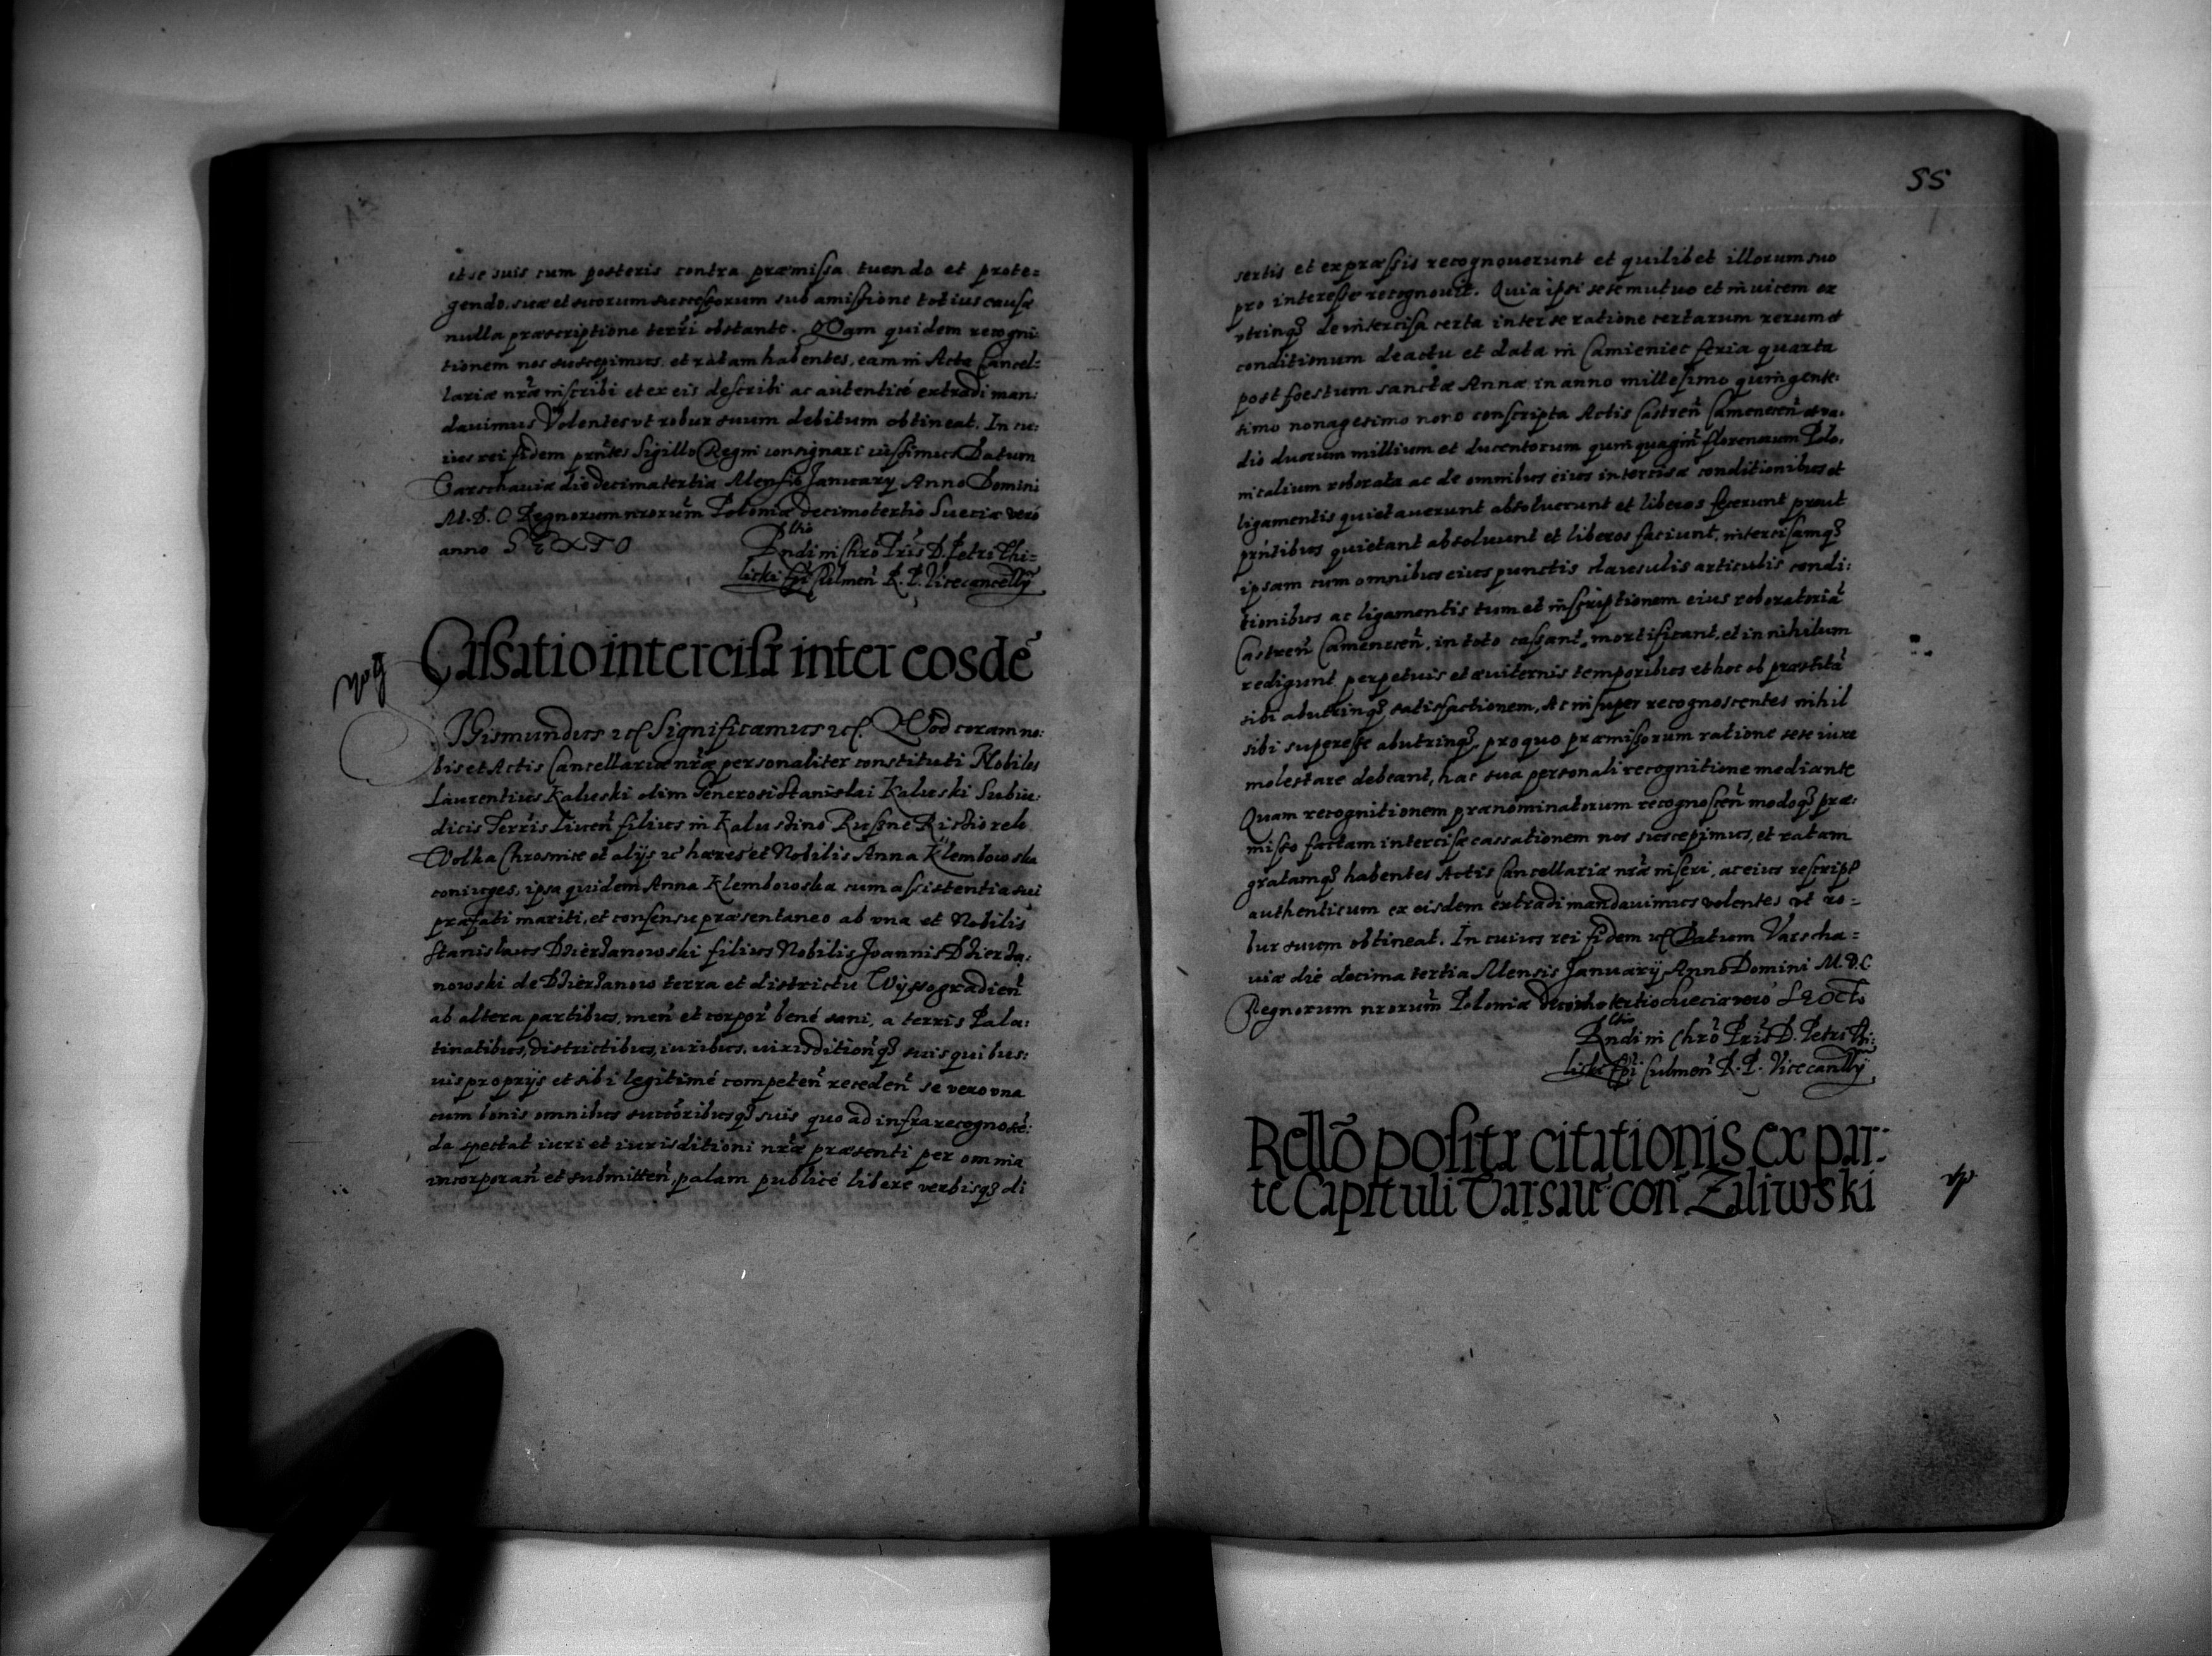 et se suis cum posteris contra præmissa tuendo et prote=
gendo. suæ et suorum successorum sub amissione totius causæ
nulla præscriptione terrĩ obstante. QVam quidem recogni
tionem nos suscepimus. et ratam habentes, eam in Acta Cancel=
lariæ nr̃æ inscribi et ex eis describi ac autenticé extradi man:
davimus Volentes vt robur suum debitum obtineat. In cu:
ius rei fidem prñtes Sigillo Regni consignari iussimus Datum
Varschaviæ die decima tertia Mensis January Anno Domini
M.D.C Regnorum nrorum̃ Poloniæ decimotertio Sueciæ veró
anno SEXTO
Rndi in Chrõ Pris̃ D. Petri Thi=
licki Epĩ Culmeñ R. P. Vicecancellÿ
Cassatio intercisæ inter eosdẽ
SIGismundus &c Significamus &c. QVod coram no:
bis et Actis Cancellariæ nr̃æ personaliter constituti Nobiles
Laurentius Kaluski olim Generosi Stanislai Kaluski Subiu:
dicis Terrĩs Liveñ filius in Kalu
Wolka Chrosnice et alijs &c hæres et Nobilis Anna Klembowska
coniuges, ipsa quidem Anna Klembowska cum assistentia sui
præfati mariti, et consensu præsentaneo ab vna et Nobilis
Stanislaus Dzierzanowski filius Nobilis Joannis Dzierza:
nowski de Dzierzanow terra et districtu Wyssogradieñ
ab altera partibus, meñ et corpor̃ bené sani, a terris Pala:
tinatibus, districtibus, iuribus, iurisditioñq3 suis quibus:
uis proprijs et sibi legitimé competeñ recedeñ se vero vna
cum bonis omnibus succõribusq3 suis quo ad infra recognoscẽ:
da spectat iuri et iurisditioni nr̃æ præsenti per omnia
incorporañ et submitteñ, palam publicé libere verbisq3 di
55
sertis et expræssis recognouerunt et quilibet illorum suo
pro interesse recognouit. Quia ipsi sese mutuo et inuicem ex
vtrinq3 de intercisa certa inter se ratione certarum rerum et
conditionum de actu et data in Camieniec feria quarta
post foestum sanctæ Annæ in anno millesimo quingente:
simo nonagesimo nono conscripta Actis Castreñ Cameneceñ et va:
dio duorum millium et ducentorum quinquagin̂ florenorum Polo:
nicalium roborata ac de omnibus eius intercisæ conditionibus et
ligamentis quietauerunt absoluerunt et liberos fecerunt prout
prñtibus quietant absoluunt et liberos faciunt. intercisamq3
ipsam cum omnibus eius punctis clausulis articulis condi:
tionibus ac ligamentis tum et inscriptionem eius roboratoriã
Castreñ Cameneceñ, in toto cassant, mortificant, et in nihilum
redigunt perpetuis et æuiternis temporibus et hoc ob præstitã
sibi abutrinq3 satisfactionem, Ac insuper recognoscentes nihil
sibi superesse abutrinq3 pro quo præmissorum ratione sese iure
molestare debeant, hac sua personali recognitione mediante
Quam recognitionem prænominatorum recognosceñ modoq3 præ:
misso factam intercisæ cassationem nos suscepimus, et ratam
gratamq3 habentes Actis Cancellariæ nr̃æ inseri, ac eius rescript̃
authenticum ex eisdem extradi mandauimus volentes vt ro=
bur suum obtineat. In cuius rei fidem &c Datum Varscha=
uiæ die decima tertia Mensis Januarij Anno Domini M.D.C
Regnorum nrorum̃ Poloniæ decimo tertio Sueciæ vero SEXTO
Rndi in Chrõ Pris̃ D. Petri Thi:
licki Epĩ Culmeñ R. P. Vicecanllÿ
Rellõ positæ citationis ex par:
te Capituli Varsaũ coñ Zaliwski